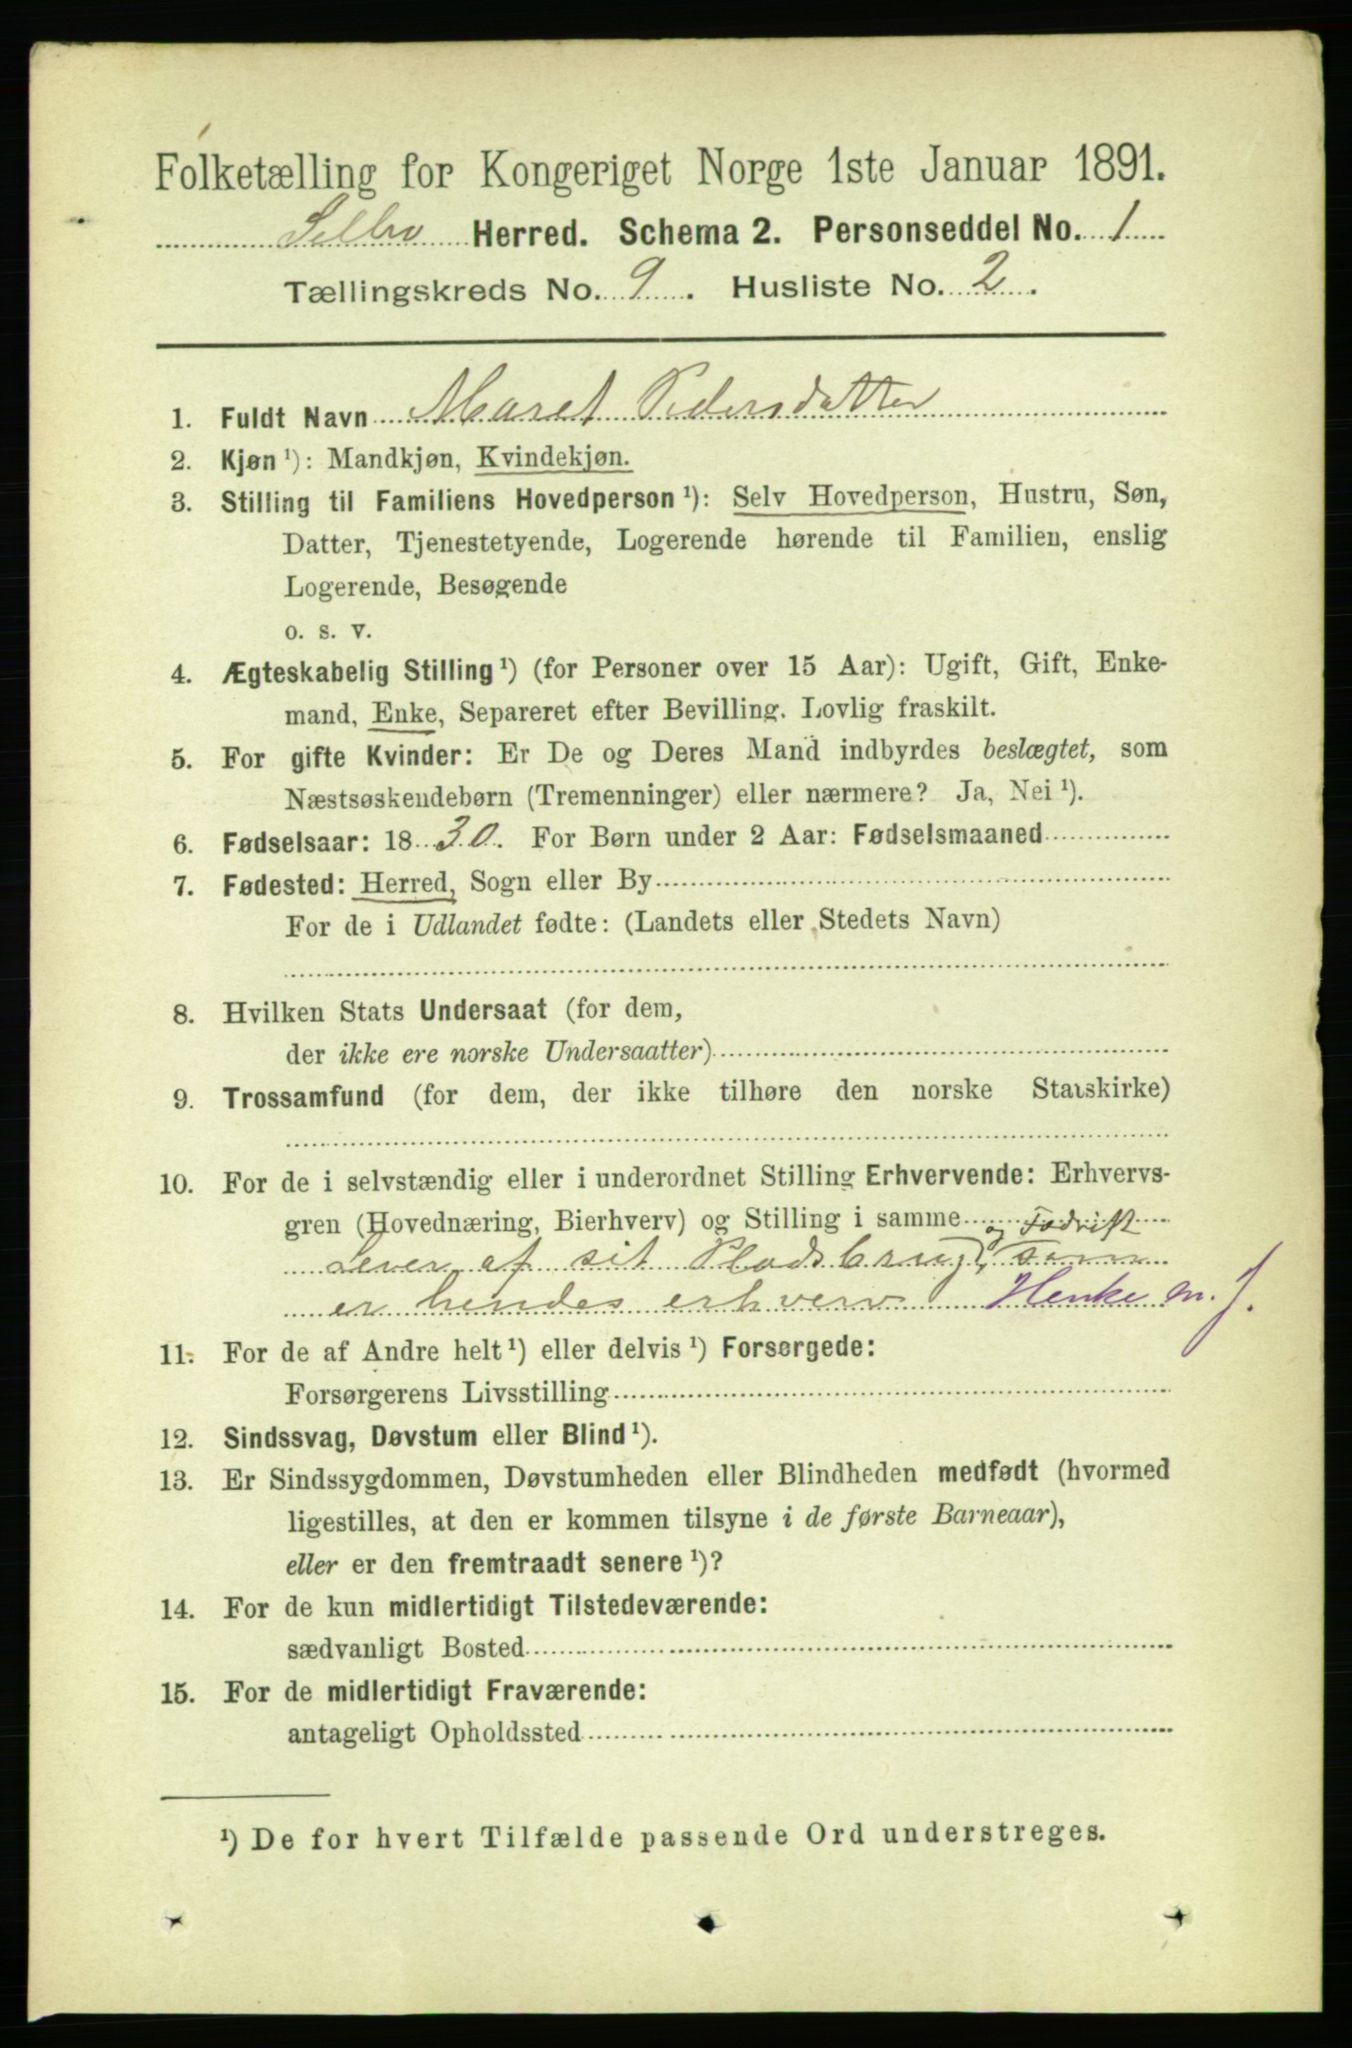 Folketælling for Kongeriget Norge 1ste Januar 1891.
Selbu Herred. Schema 2. Personseddel No. 1
Tællingskreds No. 9. Husliste No. 2.
1. Fuldt Navn Maret Pedersdatter
2. Kjøn ¹): Mandkjøn, Kvindekjøn.
3. Stilling til Familiens Hovedperson ¹): Selv Hovedperson, Hustru, Søn,
Datter, Tjenestetyende, Logerende hørende til Familien, enslig
Logerende, Besøgende
o. s. v.
4. Ægteskabelig Stilling ¹) (for Personer over 15 Aar): Ugift, Gift, Enke-
mand, Enke, Separeret efter Bevilling. Lovlig fraskilt.
5. For gifte Kvinder: Er De og Deres Mand indbyrdes beslægtet, som
Næstsøskendebørn (Tremenninger) eller nærmere? Ja, Nei ¹).
6. Fødselsaar: 1830. For Børn under 2 Aar: Fødselsmaaned
7. Fødested: Herred, Sogn eller By
For de i Udlandet fødte: (Landets eller Stedets Navn)
8. Hvilken Stats Undersaat (for dem,
der ikke ere norske Undersaatter)
9. Trossamfund (for dem, der ikke tilhøre den norske Statskirke)
10. For de i selvstændig eller i underordnet Stilling Erhvervende: Erhvervs-
gren (Hovednæring, Bierhverv) og Stilling i samme og Fædrift
Lever af sit Pladsbrug, som
er hendes erhverv Henke m. J.
11. For de af Andre helt ¹) eller delvis ¹) Forsørgede:
Forsørgerens Livsstilling
12. Sindssvag, Døvstum eller Blind ¹).
13. Er Sindssygdommen, Døvstumheden eller Blindheden medfødt (hvormed
ligestilles, at den er kommen tilsyne i de første Barneaar),
eller er den fremtraadt senere ¹)?
14. For de kun midlertidigt Tilstedeværende:
sædvanligt Bosted
15. For de midlertidigt Fraværende:
antageligt Opholdssted
¹) De for hvert Tilfælde passende Ord understreges.